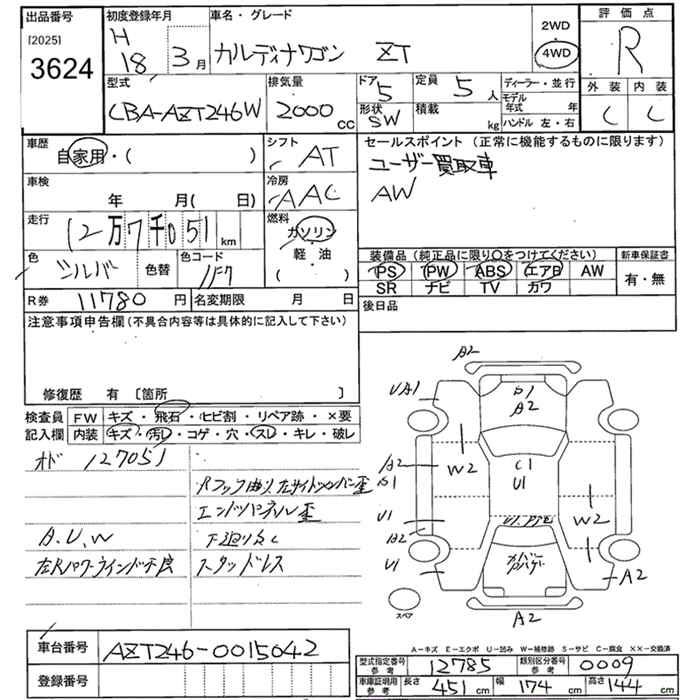 出品番号 初度登録年月 車名・グレード 2WD 評価点
[2025] H 18 3月 カルディナワゴン ZT 4WD R
3624
型式 排気量 ドア 定員 ディーラー・並行 外装 内装
CBA-AZT246W 2000 cc 5 5 人 モデル年式 年 C C
形状 SW 積載 kg ハンドル 左・右
車歴 シフト セールスポイント (正常に機能するものに限ります)
自家用・( ) AT ユーザー買取車
車検 冷房 AW
年 月( 日) AAC
走行 燃料
12万7千051 km ガソリン
軽油
( )
色 色替 色コード
シルバ 1F7
装備品 (純正品に限り○をつけてください) 新車保証書
PS PW ABS エアB AW 有・無
SR ナビ TV カワ
R券 11780 円 名変期限 月 日 後日品
注意事項申告欄 (不具合内容等は具体的に記入して下さい)
修復歴 有 [箇所 ]
検査員 FW キズ・飛石・ヒビ割・リペア跡・×要
記入欄 内装 キズ・汚レ・コゲ・穴・スレ・キレ・破レ
オド 127051
バックフロア曲り
エンドパネル歪
A.U.W 下廻りサビ
スタッドレス
A2
UA1 B1
A2
A2 W2 C1
B1 U1
U1 W2
A2
U1
A2
スペア
A2
車台番号 AZT246-0015042
登録番号
A－キズ E－エクボ U－凹み W－補修跡 S－サビ C－腐食 X×－交換済
型式指定番号 参考 12785 類別区分番号 参考 0009
車庫証明用 参考 長さ 451 cm 幅 174 cm 高さ 144 cm